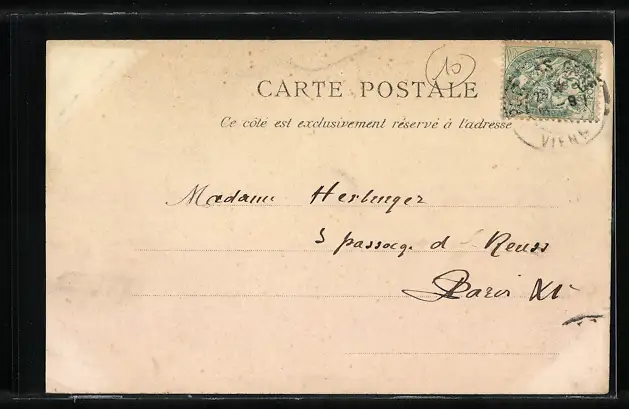 10
CARTE POSTALE
Ce côté est exclusivement réservé à l'adresse
VIENN
Madame Herlinger
5 passage d Reuss
Paris XI